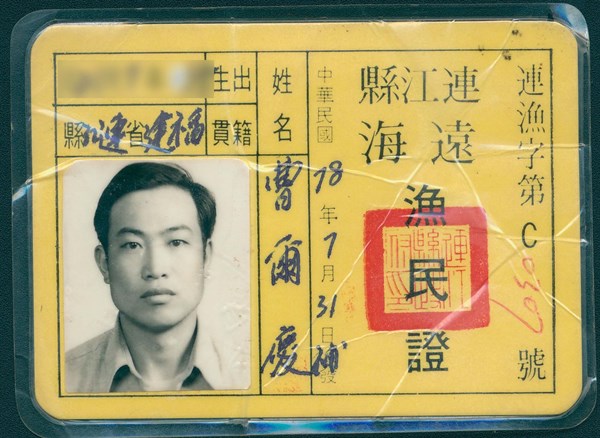 連漁字第C號
連江縣
遠海
漁民證
中華民國78年7月31日補發
姓名 曹爾慶
出生
籍貫 福建省連江縣